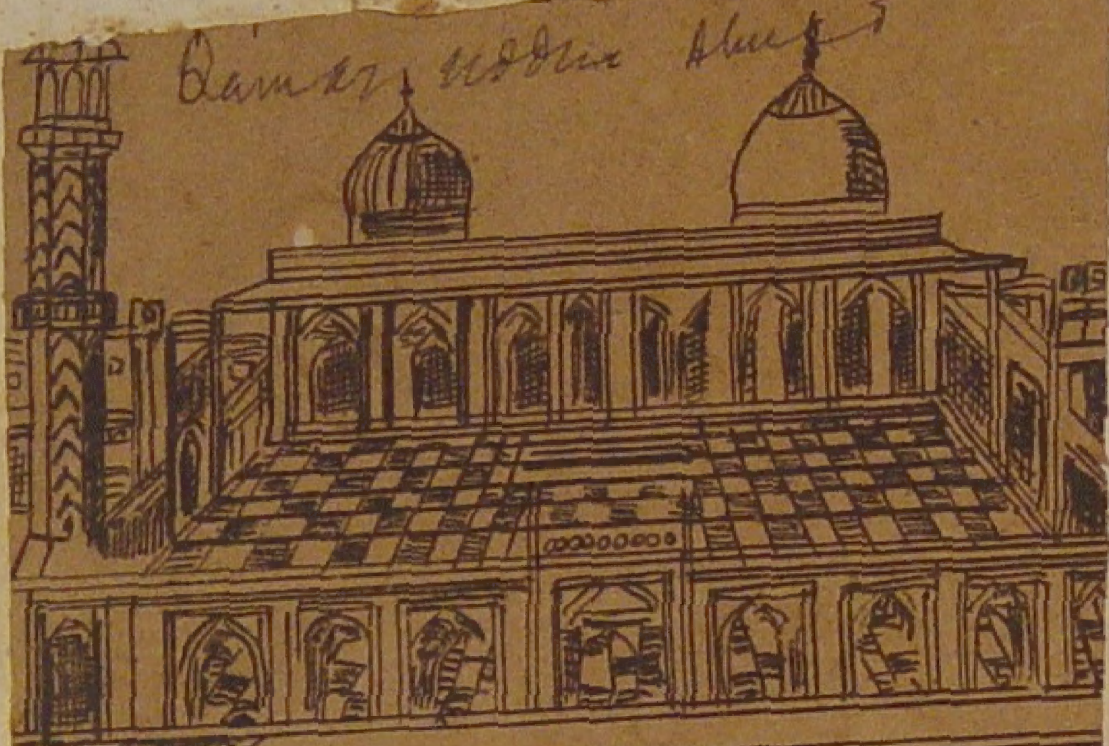 Qamar uddin Ahmed